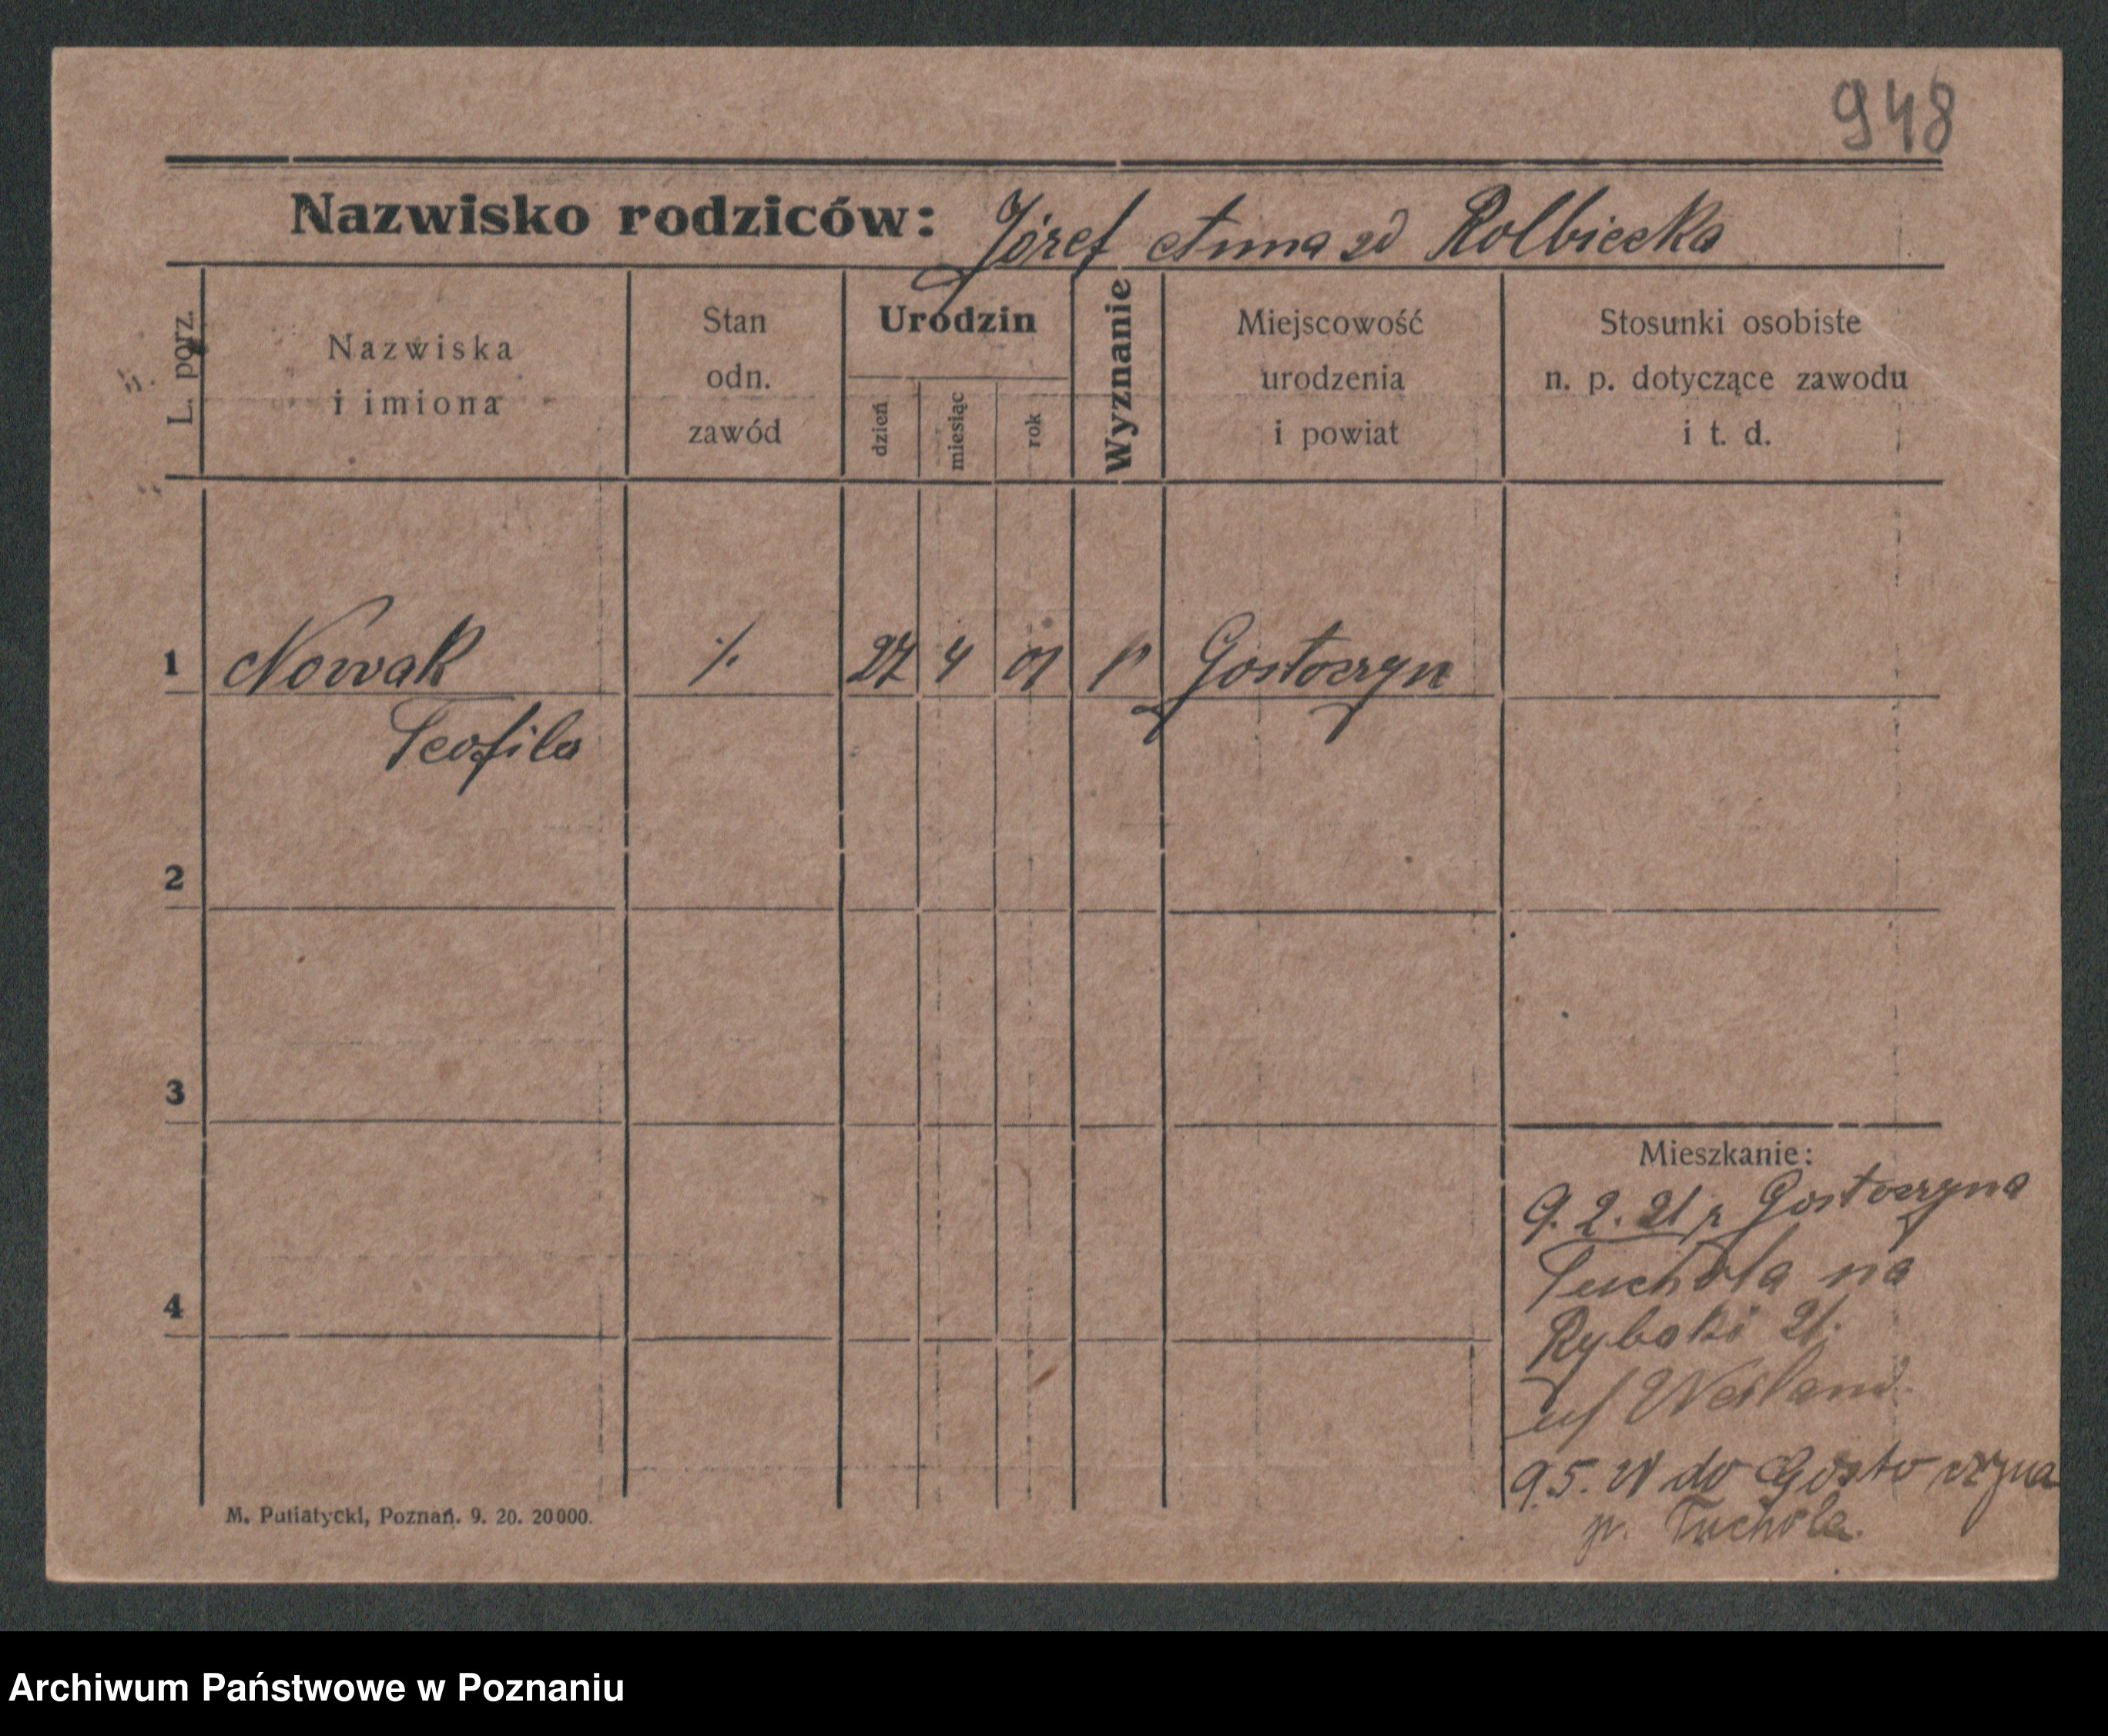 948
Nazwisko rodziców: Józef Anna zd Rolbiecka
L. porz.
Nazwiska
i imiona
Stan
odn.
zawód
Urodzin
dzień
miesiąc
rok
Wyznanie
Miejscowość
urodzenia
i powiat
Stosunki osobiste
n. p. dotyczące zawodu
i t. d.
1 Nowak ./. 27 4 01 Gostoczyn
Teofila
2
3
4
Mieszkanie:
9. 2. 21 z Gostoczyna
Tuchola na
Rybaki 21.
9.5. 21 do Gostoczyna
p. Tuchola.
M. Putiatycki, Poznań. 9. 20. 20000.
Archiwum Państwowe w Poznaniu